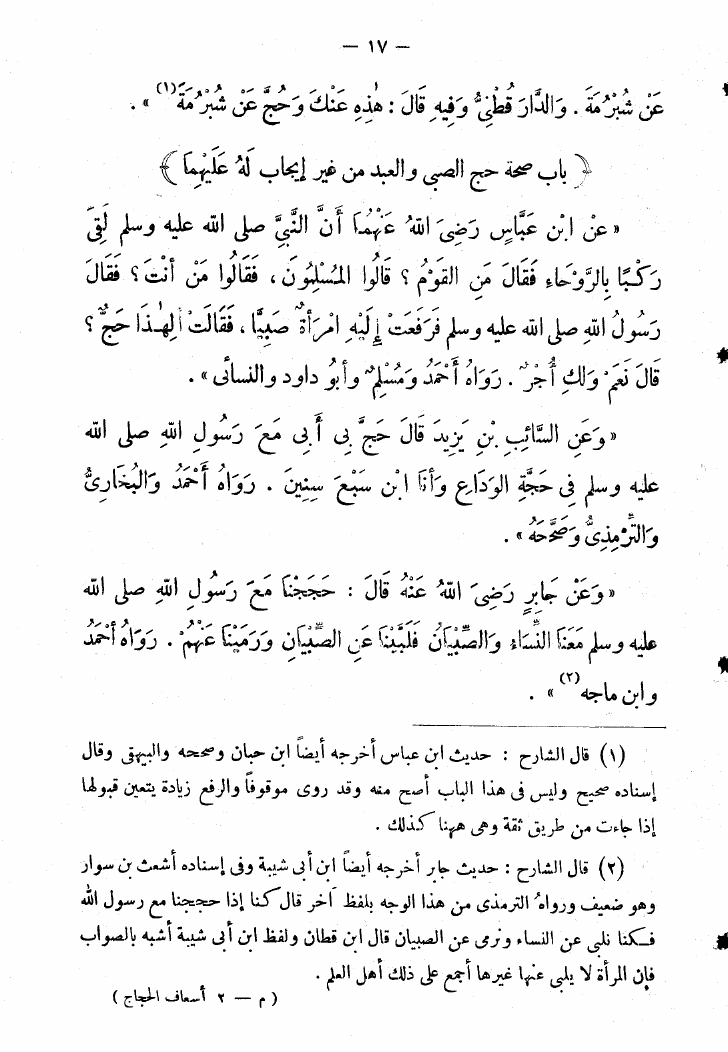 — ١٧ —
عَنْ شُبْرُمَةَ . وَالدَّارَ قُطْنِىُّ وَفِيهِ قَالَ : هٰذِهِ عَنْكَ وَحُجَّ عَنْ شُبْرُمَةَ (١) » .
﴿ باب صحة حج الصبى والعبد من غير إيجاب لَهُ عَلَيْهِمَا ﴾
« عَنْ ابْنِ عَبَّاسٍ رَضِىَ اللهُ عَنْهُمَا أَنَّ النَّبِىَّ صلى الله عليه وسلم لَقِىَ
رَكْبًا بِالرَّوْحَاءِ فَقَالَ مَنِ القَوْمُ ؟ قَالُوا المُسْلِمُونَ ، فَقَالُوا مَنْ أَنْتَ ؟ فَقَالَ
رَسُولُ اللهِ صلى الله عليه وسلم فَرَفَعَتْ إِلَيْهِ امْرَأَةٌ صَبِيًّا ، فَقَالَتْ أَلِهـٰذَا حَجٌّ ؟
قَالَ نَعَمْ وَلَكِ أَجْرٌ . رَوَاهُ أَحْمَدُ وَمُسْلِمٌ وأَبُو داود والنسائى » .
« وَعَنِ السَّائِبِ بْنِ يَزِيدَ قَالَ حَجَّ بِى أَبِى مَعَ رَسُولِ اللهِ صلى الله
عليه وسلم فِى حَجَّةِ الوَدَاعِ وَأَنَا ابْن سَبْعَ سِنِينَ . رَوَاهُ أَحْمَدُ وَالبُخَارِىُّ
وَالتِّرْمِذِىُّ وَصَحَّحَهُ » .
« وَعَنْ جَابِرٍ رَضِىَ اللهُ عَنْهُ قَالَ : حَجَجْنَا مَعَ رَسُولِ اللهِ صلى الله
عليه وسلم مَعَنَا النِّسَاءُ وَالصِّبْيَانُ فَلَبَّيْنَا عَنِ الصِّبْيَانِ وَرَمَيْنَا عَنْهُمْ . رَوَاهُ أَحْمَدُ
وابن ماجه (٢) » .
(١) قال الشارح : حديث ابن عباس أخرجه أيضاً ابن حبان وصححه والبيهقى وقال
إسناده صحيح وليس فى هذا الباب أصح منه وقد روى موقوفاً والرفع زيادة يتعين قبولها
إذا جاءت من طريق ثقة وهى ههنا كذلك .
(٢) قال الشارح : حديث جابر أخرجه أيضاً ابن أبى شيبة وفى إسناده أشعث بن سوار
وهو ضعيف ورواه الترمذى من هذا الوجه بلفظ آخر قال كنا إذا حججنا مع رسول الله
فكنا نلبى عن النساء ونرمى عن الصبيان قال ابن قطان ولفظ ابن أبى شيبة أشبه بالصواب
فإن المرأة لا يلبى عنها غيرها أجمع على ذلك أهل العلم .
( م — ٢ أسعاف الحجاج )